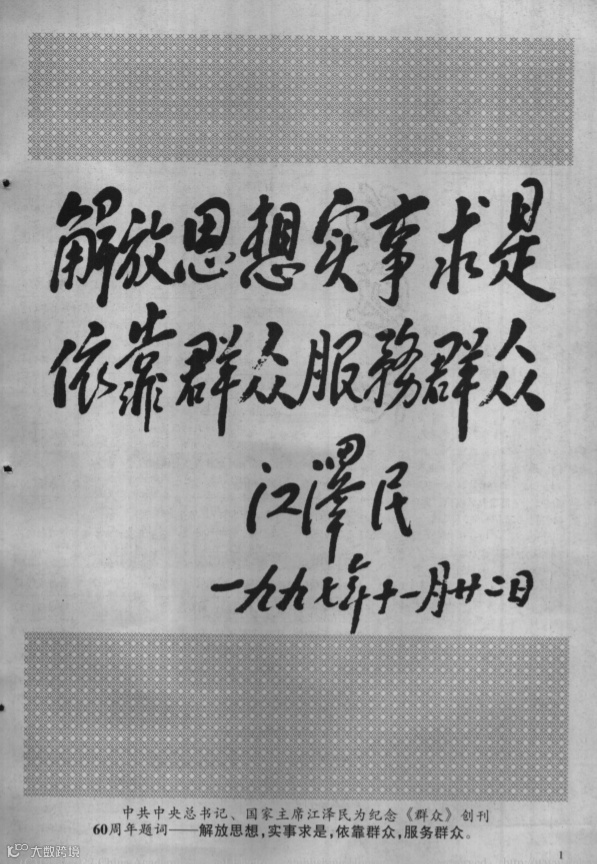 解放思想实事求是
依靠群众服務群众
江澤民
一九九七年十一月廿二日
中共中央总书记、国家主席江泽民为纪念《群众》创刊
60周年题词——解放思想,实事求是,依靠群众,服务群众。
大数跨境
1